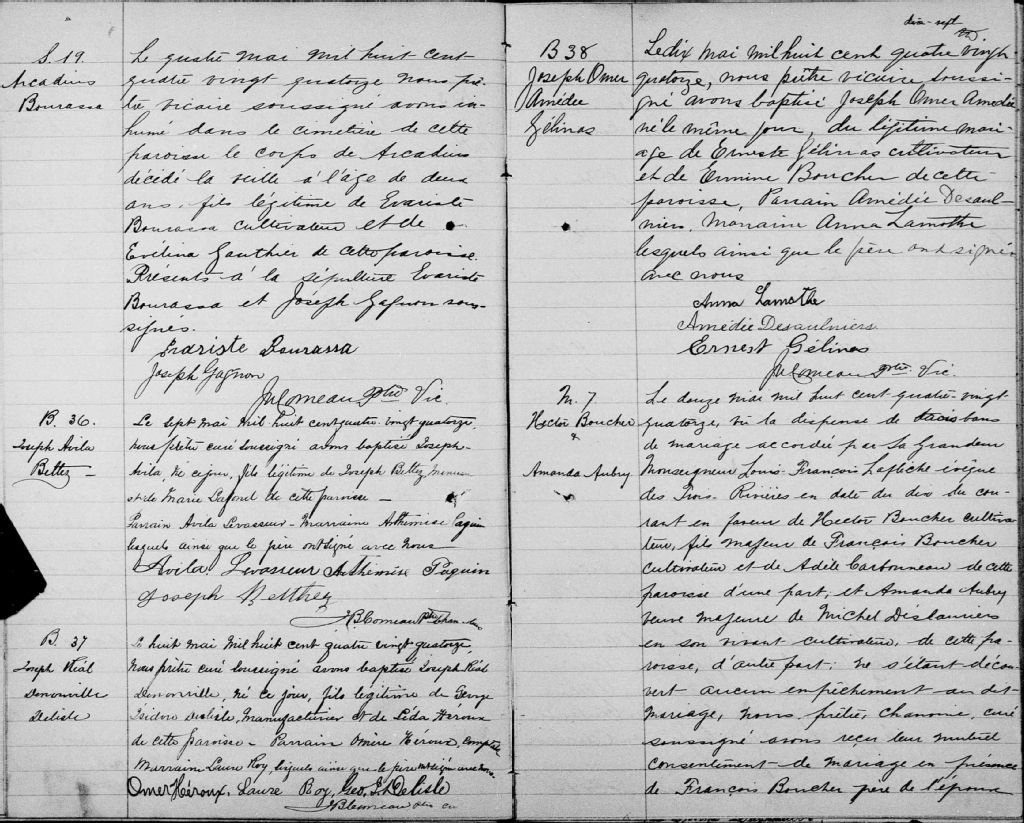 S. 19.
Arcadius
Bourassa
Le quatre mai mil huit cent
quatre vingt quatorze nous prê-
tre vicaire soussigné avons in-
humé dans le cimetière de cette
paroisse le corps de Arcadius
décédé la veille à l'âge de deux
ans, fils légitime de Evariste
Bourassa cultivateur et de
Evélina Gauthier de cette paroisse.
Présents à la sépulture Evariste
Bourassa et Joseph Gagnon sous-
signés.
Evariste Bourassa
Joseph Gagnon
Comeau Ptre Vic.
B. 36.
Joseph Avila
Bettez
Le sept mai mil huit cent quatre vingt quatorze,
nous prêtre curé soussigné avons baptisé Joseph-
Avila, né ce jour, fils légitime de Joseph Bettez
et de Marie Lafond de cette paroisse —
Parrain Avila Levasseur - Marraine Arthémise Paquin
lesquels ainsi que le père ont signé avec nous
Avila Levasseur Arthémise Paquin
Joseph Bethez
JB Comeau Ptre Chan.
B. 37
Joseph Réal
Denonville
Delisle
Le huit mai mil huit cent quatre vingt quatorze,
nous prêtre curé soussigné avons baptisé Joseph Réal
Denonville, né ce jour, fils légitime de George
Isidore Delisle, manufacturier et de Léda Héroux
de cette paroisse - Parrain Omère Héroux,
Marraine Laure Roy, lesquels ainsi que le père ont signé avec nous
Omer Héroux. Laure Roy, Geo. Delisle
JB Comeau
dix-sept
B 38
Joseph Omer
Amédée
Gélinas
Le dix mai mil huit cent quatre vingt
quatorze, nous prêtre vicaire soussi-
gné avons baptisé Joseph Omer Amédée
né le même jour, du légitime mari-
age de Erneste Gélinas cultivateur
et de Ermine Boucher de cette
paroisse, Parrain Amédée Desaul-
niers, Marraine Anna Lamothe
lesquels ainsi que le père ont signé
avec nous
Anna Lamothe
Amédée Desaulniers
Ernest Gélinas
Comeau Ptre Vic.
M. 7
Hector Boucher
&
Amanda Aubry
Le douze mai mil huit cent quatre-vingt
quatorze, vu la dispense de bans
de mariage accordée par Sa Grandeur
Monseigneur Louis-François Laflèche évêque
des Trois-Rivières en date du dix du cou-
rant en faveur de Hector Boucher cultiva-
teur, fils majeur de François Boucher
cultivateur et de Adèle Carbonneau de cette
paroisse d'une part; et Amanda Aubry
veuve majeure de Michel Deslauriers
en son vivant cultivateur, de cette pa-
roisse, d'autre part; ne s'étant décou-
vert aucun empêchement au dit
mariage, nous, prêtre, chanoine, curé
soussigné avons reçu leur mutuel
consentement de mariage en présence
de François Boucher père de l'époux